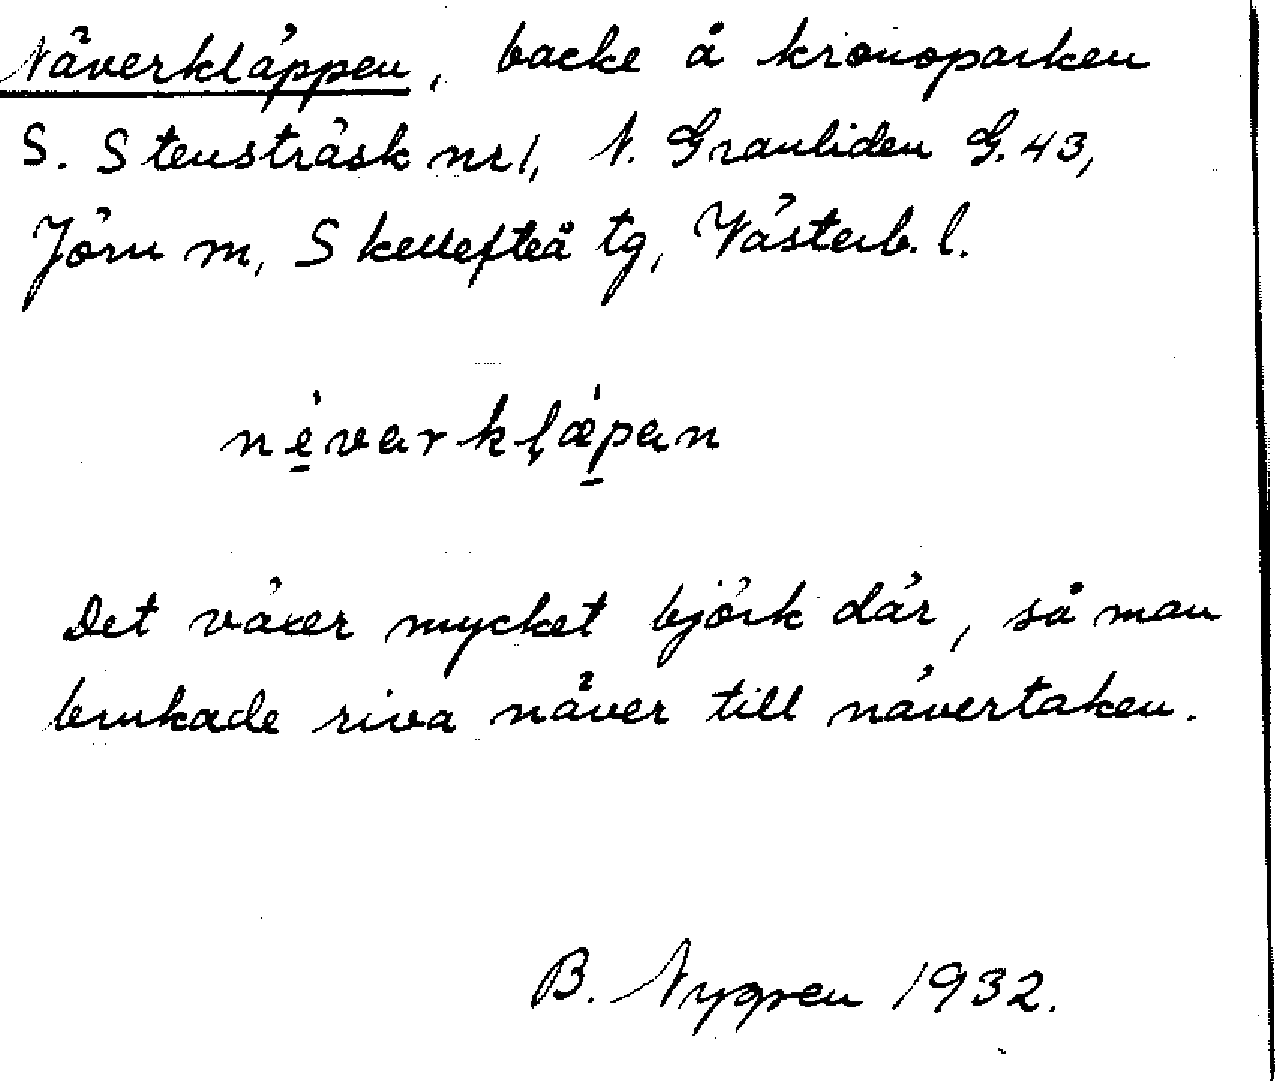 Näverkläppen, backe å kronoparken
S. Stensträsk nr 1, N. Granliden G. 43,
Jörn sn, Skellefteå tg, Västerb. l.
nẹ̀varkl̥æ̀pan
Det växer mycket björk där, så man
brukade riva näver till nävertaken.
B. Nygren 1932.